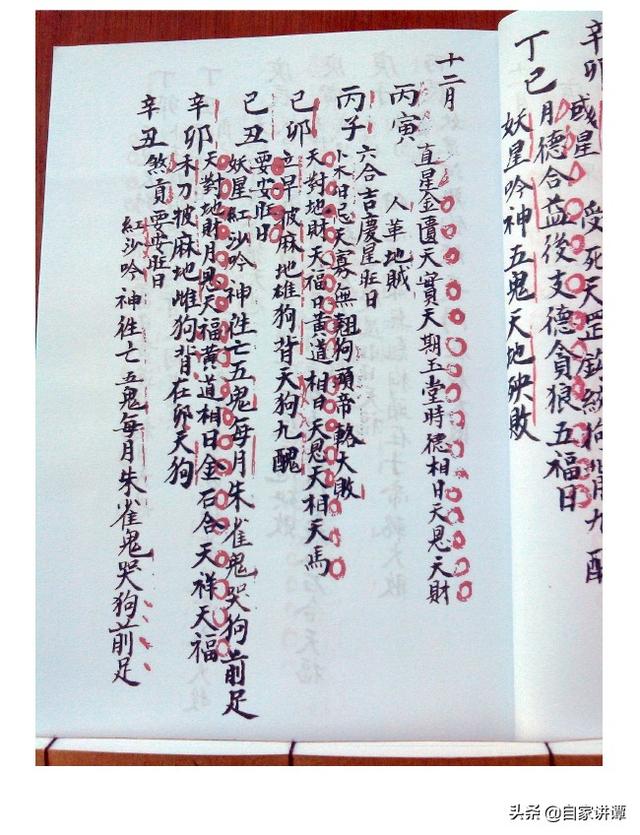 辛卯 國星 受死天罡鈎絞狗背九醜
丁巳 月德合益後支德貪狼五福日
妖星吟神五鬼天地殃敗
十二月
丙寅 直星金匱天寶天期玉堂時德相日天恩天財
人革地賊
丙子 六合吉慶星旺日
小木日忌天寡無翹狗頭帝輅大敗
己卯 天對地財天福日黃道相日天恩天相天馬
立早披麻地雄狗背天狗九醜
己丑 要安旺日
妖星紅沙吟神往亡五鬼每月朱雀鬼哭狗前足
辛卯 天對地財月恩天福黃道相日金石合天祥天福
禾刀披麻地雌狗背在卯天狗
辛丑 煞貢要安旺日
紅沙吟神往亡五鬼每月朱雀鬼哭狗前足
头条 @自家讲谭